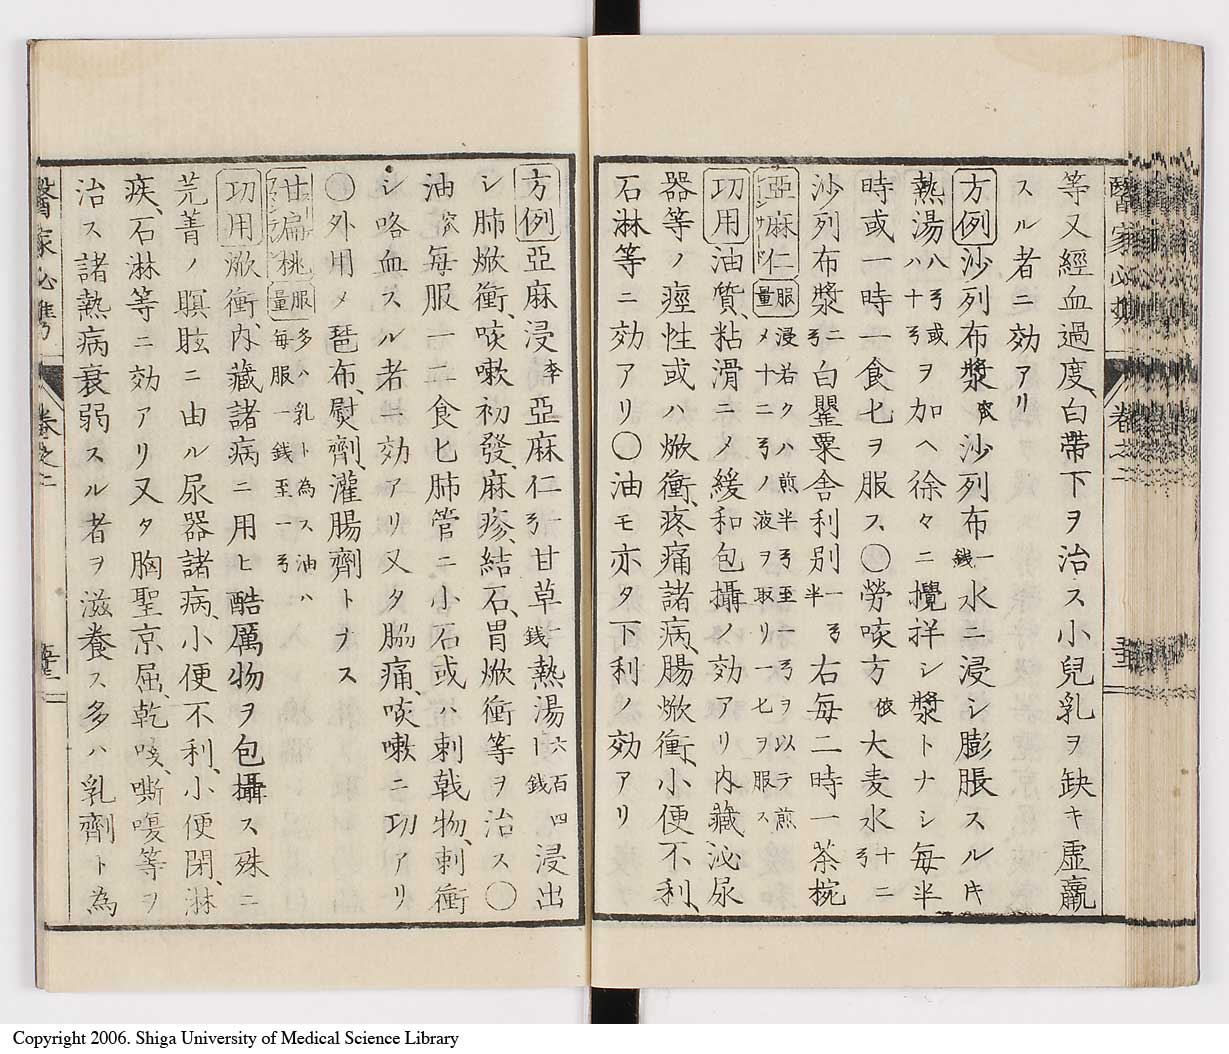 等又經血過度、白帶下ヲ治ス小兒乳ヲ缺キ虛羸
スル者ニ効アリ
方例 沙列布漿 㝎 沙列布 一錢 水ニ浸シ膨脹スルキ
熱湯 八ゟ或ハ十ゟ ヲ加ヘ徐々ニ攪拌シ漿トナシ每半
時或一時一食匕ヲ服ス○勞咳方 依 大麦水 十二ゟ
沙列布漿 二ゟ 白罌粟舍利別 一ゟ半 右每二時一茶椀
亞麻仁 服量 浸若クハ煎半ゟ至一ゟヲ以テ煎メ十二ゟノ液ヲ取リ一匕ヲ服ス
功用 油質、粘滑ニメ緩和包攝ノ効アリ內藏、泌尿
器等ノ痙性或ハ焮衝、疼痛諸病、腸焮衝、小便不利、
石淋等ニ効アリ○油モ亦タ下利ノ効アリ
醫家必携
卷之二
方例 亞麻浸 李 亞麻仁 一ゟ 甘草 一錢 熱湯 百四六錢 浸出
シ肺焮衝、咳嗽初發、麻疹、結石、胃焮衝等ヲ治ス○
油 㝎 每服一二食匕肺管ニ小石或ハ刺戟物、刺衝
シ咯血スル者ニ効アリ又タ脇痛、咳嗽ニ功アリ
○外用メ琶布、熨劑、灌腸劑トナス
甘扁桃 服量 多ハ乳ト為ス油ハ每服一錢至一ゟ
功用 焮衝、內藏諸病ニ用ヒ酷厲物ヲ包攝ス殊ニ
芫菁ノ瞑眩ニ由ル尿器諸病、小便不利、小便閉、淋
疾、石淋等ニ効アリ又タ胸聖京屈、乾咳、嘶嗄等ヲ
治ス諸熱病衰弱スル者ヲ滋養ス多ハ乳劑ト為
醫家必携
卷之二